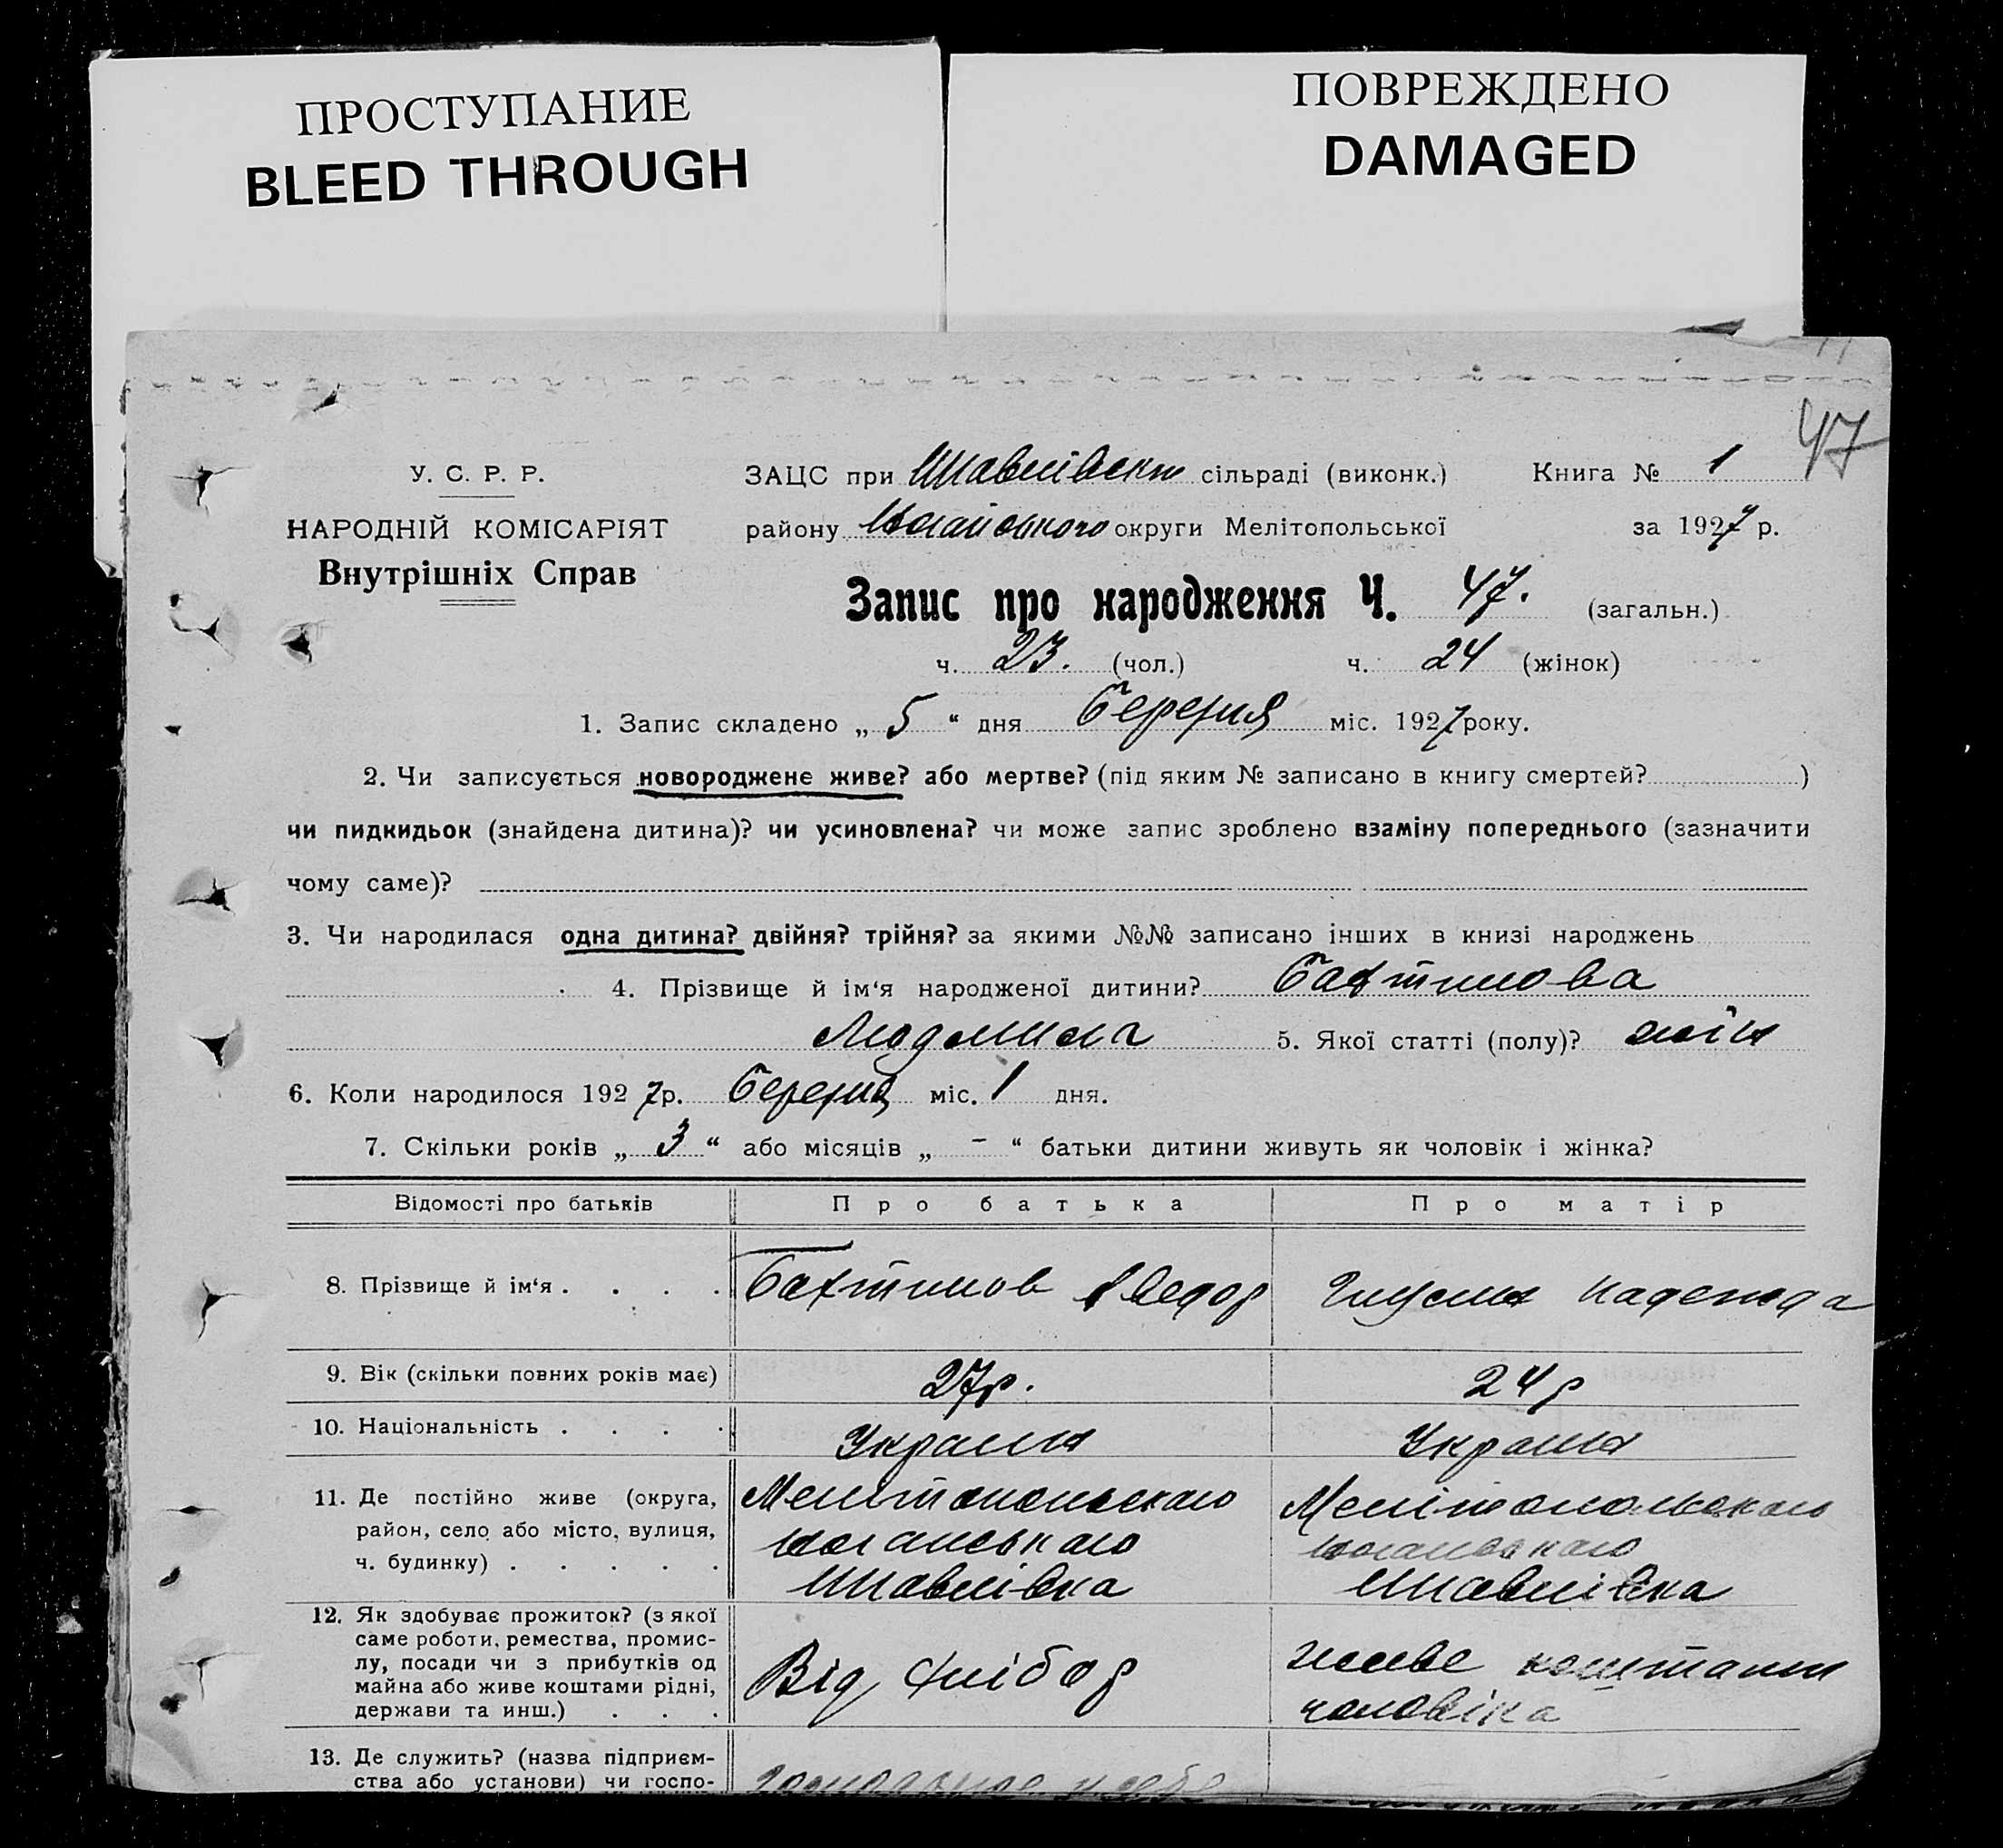 ПРОСТУПАНИЕ
BLEED THROUGH
ПОВРЕЖДЕНО
DAMAGED
47
У. С. Р. Р.
НАРОДНІЙ КОМІСАРІЯТ
Внутрішніх Справ
ЗАЦС при сільраді (виконк.) Книга № 1
району округи Мелітопольської за 1927 р.
Запис про народження Ч. 47. (загальн.)
ч. 23. (чол.) ч. 24 (жінок)
1. Запис складено „ 5 “ дня Березня міс. 1927 року.
2. Чи записується новороджене живе? або мертве? (під яким № записано в книгу смертей? )
чи пидкидьок (знайдена дитина)? чи усиновлена? чи може запис зроблено взаміну попереднього (зазначити
чому саме)?
3. Чи народилася одна дитина? двійня? трійня? за якими №№ записано інших в книзі народжень
4. Прізвище й ім‘я народженої дитини?
Людмила 5. Якої статті (полу)?
6. Коли народилося 1927 р. Березня міс. 1 дня.
7. Скільки років „ 3 “ або місяців „ - “ батьки дитини живуть як чоловік і жінка?
Відомості про батьків Про батька Про матір
8. Прізвище й ім‘я . . . . Надежда
9. Вік (скільки повних років має) 27 р. 24 р
10. Національність . . . . Украин Украин
11. Де постійно живе (округа,
район, село або місто, вулиця,
ч. будинку) . . . . .
Шавлівка Шавлівка
12. Як здобуває прожиток? (з якої
саме роботи, ремества, промис-
лу, посади чи з прибутків од
майна або живе коштами рідні,
держави та инш.) . . .
Від живе коштами
чоловіка
13. Де служить? (назва підприєм-
ства або установи) чи госпо-